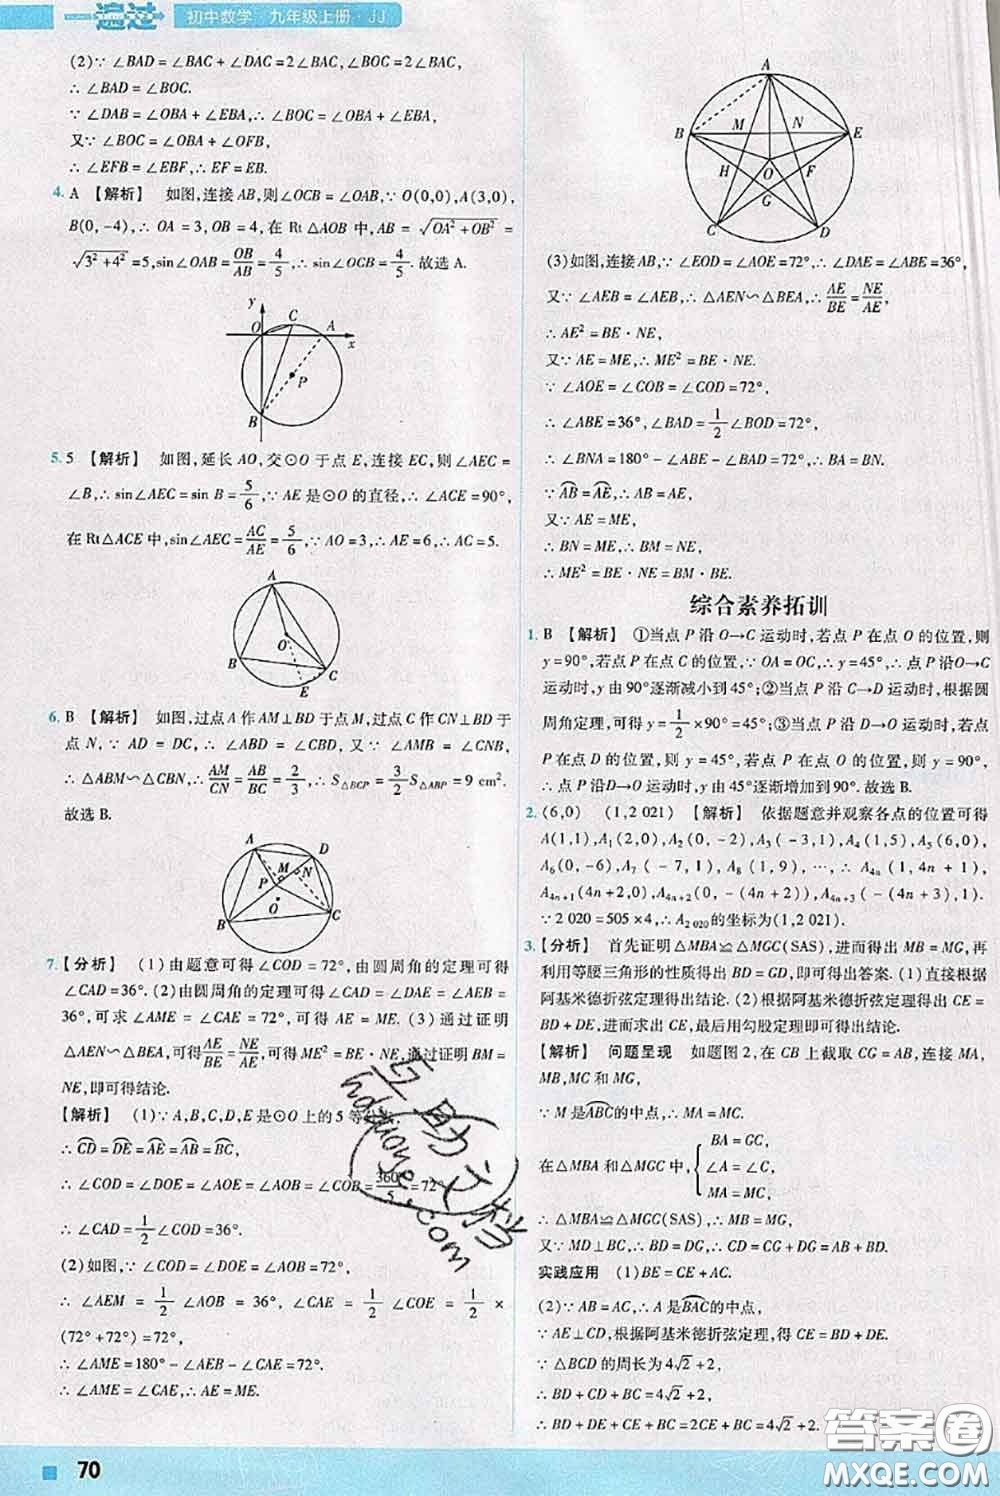 一遍过 初中数学·九年级上册·JJ
(2)∵ ∠BAD = ∠BAC + ∠DAC = 2∠BAC, ∠BOC = 2∠BAC,
∴ ∠BAD = ∠BOC.
∵ ∠DAB = ∠OBA + ∠EBA, ∴ ∠BOC = ∠OBA + ∠EBA,
又∵ ∠BOC = ∠OBA + ∠OFB,
∴ ∠EFB = ∠EBF, ∴ EF = EB.
4. A 【解析】 如图,连接 AB,则∠OCB = ∠OAB,∵ O(0,0),A(3,0),
B(0,-4),∴ OA = 3,OB = 4,在 Rt△AOB 中,AB = √(OA²+OB²) =
√(3²+4²) = 5,sin∠OAB = OB/AB = 4/5,∴ sin∠OCB = 4/5. 故选 A.
y
O C A x
P
B
5. 5 【解析】 如图,延长 AO,交⊙O 于点 E,连接 EC,则∠AEC =
∠B,∴ sin∠AEC = sin B = 5/6,∵ AE 是⊙O 的直径,∴ ∠ACE = 90°,
在 Rt△ACE 中,sin∠AEC = AC/AE = 5/6,∵ AO = 3,∴ AE = 6,∴ AC = 5.
A
O
B C
E
6. B 【解析】 如图,过点 A 作 AM⊥BD 于点 M,过点 C 作 CN⊥BD 于
点 N,∵ AD = DC,∴ ∠ABD = ∠CBD,又∵ ∠AMB = ∠CNB,
∴ △ABM∽△CBN,∴ AM/CN = AB/BC = 2/3,∴ S△BCP = 3/2 S△ABP = 9 cm².
故选 B.
A D
M N
P
O
B C
7. 【分析】 (1)由题意可得∠COD = 72°,由圆周角的定理可得
∠CAD = 36°. (2)由圆周角的定理可得∠CAD = ∠DAE = ∠AEB =
36°,可求∠AME = ∠CAE = 72°,可得 AE = ME. (3)通过证明
△AEN∽△BEA,可得 AE/BE = NE/AE,可得 ME² = BE·NE,通过证明 BM =
NE,即可得结论.
【解析】 (1)∵ A,B,C,D,E 是⊙O 上的 5 等
∴ CD = DE = AE = AB = BC,
∴ ∠COD = ∠DOE = ∠AOE = ∠AOB = ∠COB = 360°/5 = 72°
∴ ∠CAD = 1/2 ∠COD = 36°.
(2)如图,∵ ∠COD = ∠DOE = ∠AOB = 72°
∴ ∠AEM = 1/2 ∠AOB = 36°,∠CAE = 1/2 ∠COE = 1/2 ×
(72° + 72°) = 72°,
∴ ∠AME = 180° - ∠AEB - ∠CAE = 72°,
∴ ∠AME = ∠CAE,∴ AE = ME.
A
B M N E
O
H F
G
C D
(3)如图,连接 AB,∵ ∠EOD = ∠AOE = 72°,∴ ∠DAE = ∠ABE = 36°,
又∵ ∠AEB = ∠AEB,∴ △AEN∽△BEA,∴ AE/BE = NE/AE,
∴ AE² = BE·NE,
又∵ AE = ME,∴ ME² = BE·NE.
∵ ∠AOE = ∠COB = ∠COD = 72°,
∴ ∠ABE = 36°,∠BAD = 1/2 ∠BOD = 72°,
∴ ∠BNA = 180° - ∠ABE - ∠BAD = 72°,∴ BA = BN.
∵ AB = AE,∴ AB = AE,
又∵ AE = ME,
∴ BN = ME,∴ BM = NE,
∴ ME² = BE·NE = BM·BE.
综合素养拓训
1. B 【解析】 ①当点 P 沿 O→C 运动时,若点 P 在点 O 的位置,则
y = 90°,若点 P 在点 C 的位置,∵ OA = OC,∴ y = 45°,∴ 点 P 沿O→C
运动时,y 由 90°逐渐减小到 45°;②当点 P 沿 C→D 运动时,根据圆
周角定理,可得 y = 1/2 × 90° = 45°;③当点 P 沿 D→O 运动时,若点
P 在点 D 的位置,则 y = 45°,若点 P 在点 O 的位置,则 y = 90°,∴ 点
P 沿 D→O 运动时,y 由 45°逐渐增加到 90°. 故选 B.
2. (6,0) (1,2 021) 【解析】 依据题意并观察各点的位置可得
A(1,1),A₁(2,0),A₂(0,-2),A₃(-3,1),A₄(1,5),A₅(6,0),
A₆(0,-6),A₇(-7,1),A₈(1,9),…,∴ A₄ₙ(1,4n+1),
A₄ₙ₊₁(4n+2,0),A₄ₙ₊₂(0,-(4n+2)),A₄ₙ₊₃(-(4n+3),1).
∵ 2 020 = 505×4,∴ A₂ ₀₂₀的坐标为(1,2 021).
3. 【分析】 首先证明△MBA≌△MGC(SAS),进而得出 MB = MG,再
利用等腰三角形的性质得出 BD = GD,即可得出答案. (1)直接根据
阿基米德折弦定理得出结论. (2)根据阿基米德折弦定理得出 CE =
BD + DE,进而求出 CE,最后用勾股定理即可得出结论.
【解析】 问题呈现 如题图 2,在 CB 上截取 CG = AB,连接 MA,
MB,MC 和 MG,
∵ M 是ABC的中点,∴ MA = MC.
在△MBA 和△MGC 中,{ BA = GC,
∠A = ∠C,
MA = MC,
∴ △MBA≌△MGC(SAS),∴ MB = MG,
又∵ MD⊥BC,∴ BD = GD,∴ CD = CG + GD = AB + BD.
实践应用 (1)BE = CE + AC.
(2)∵ AB = AC,∴ A 是BAC的中点,
∵ AE⊥CD,根据阿基米德折弦定理,得 CE = BD + DE.
∵ △BCD 的周长为 4√2 + 2,
∴ BD + CD + BC = 4√2 + 2,
∴ BD + DE + CE + BC = 2CE + BC = 4√2 + 2.
70
互助文档
hdzuoye.com
答案圈
MXQE.COM